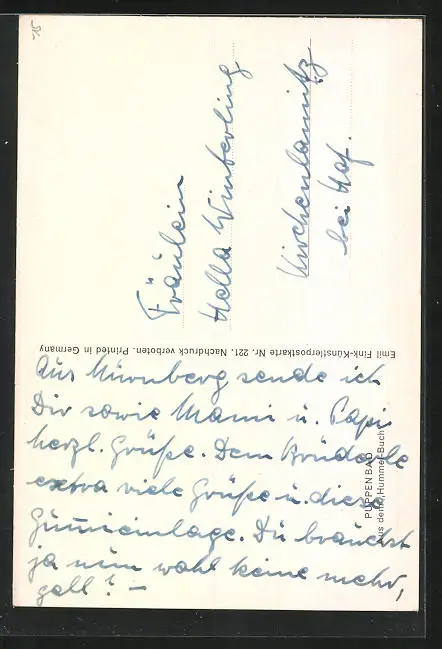 Fräulein
Hella Winterling
Kirchenlamitz
bei Hof.
Emil Fink-Künstlerpostkarte Nr. 221. Nachdruck verboten. Printed in Germany
Aus Nürnberg sende ich
Dir sowie Mami u. Papi
herzl. Grüße. Dem Brüderle
extra viele Grüße u. diese
Gummieinlage. Du brauchst
ja nun wohl keine mehr,
gell? –
PUPPENBAD
Aus dem „Hummel-Buch“